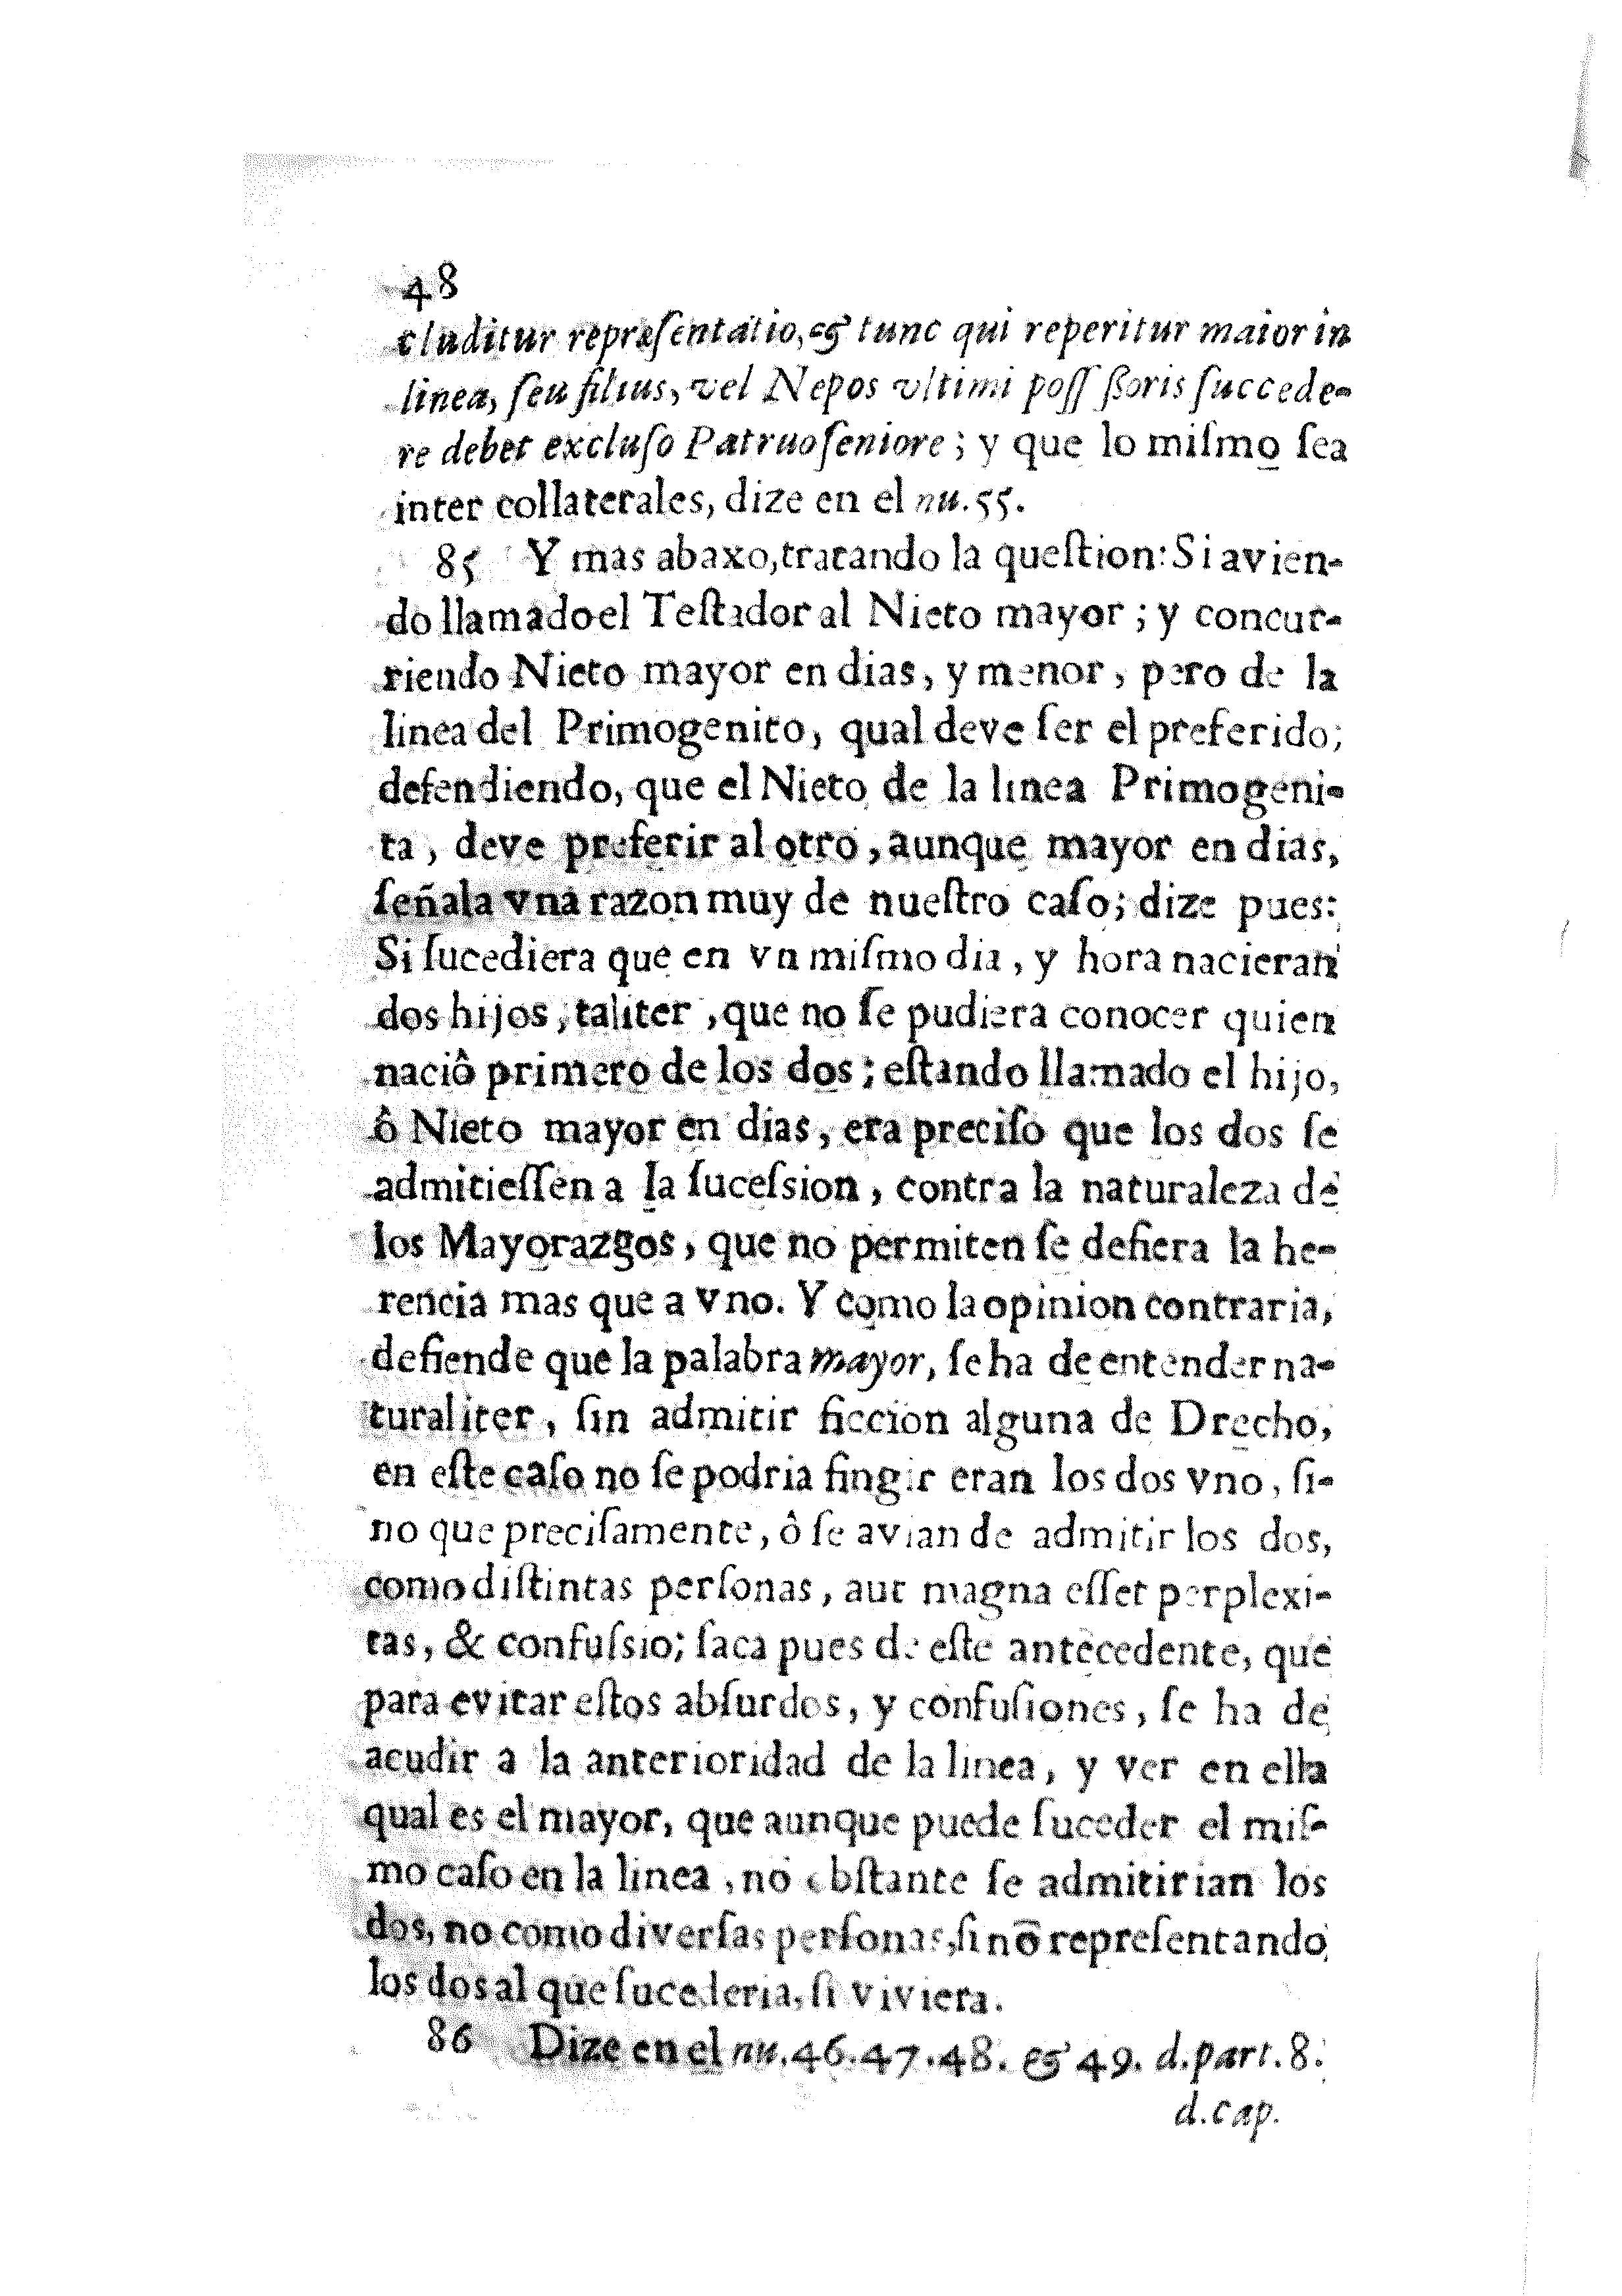 48
cluditur repræſentatio, & tunc qui reperitur maior in
linea, ſeu filius, vel Nepos vltimi poſſ ßoris ſuccede-
re debet excluſo Patruo ſeniore; y que lo miſmo ſea
inter collaterales, dize en el nu. 55.
85 Y mas abaxo, tratando la queſtion: Si avien-
do llamado el Teſtador al Nieto mayor; y concur-
riendo Nieto mayor en dias, y menor, pero de la
linea del Primogenito, qual deve ſer el preferido;
defendiendo, que el Nieto de la linea Primogeni-
ta, deve preferir al otro, aunque mayor en dias,
ſeñala vna razon muy de nueſtro caſo; dize pues:
Si ſucediera que en vn miſmo dia, y hora nacieran
dos hijos, taliter, que no ſe pudiera conocer quien
naciô primero de los dos; eſtando llamado el hijo,
ô Nieto mayor en dias, era preciſo que los dos ſe
admitieſſen a la ſuceſsion, contra la naturaleza de
los Mayorazgos, que no permiten ſe defiera la he-
rencia mas que a vno. Y como la opinion contraria,
defiende que la palabra mayor, ſe ha de entender na-
turaliter, ſin admitir ficcion alguna de Drecho,
en eſte caſo no ſe podria fingir eran los dos vno, ſi-
no que preciſamente, ô ſe avian de admitir los dos,
como diſtintas perſonas, aut magna eſſet perplexi-
tas, & confuſsio; ſaca pues de eſte antecedente, que
para evitar eſtos abſurdos, y confuſiones, ſe ha de
acudir a la anterioridad de la linea, y ver en ella
qual es el mayor, que aunque puede ſuceder el miſ-
mo caſo en la linea, no obſtante ſe admitirian los
dos, no como diverſas perſonas, ſinō repreſentando
los dos al que ſucederia, ſi viviera.
86 Dize en el nu. 46. 47. 48. & 49. d. part. 8.
d. cap.